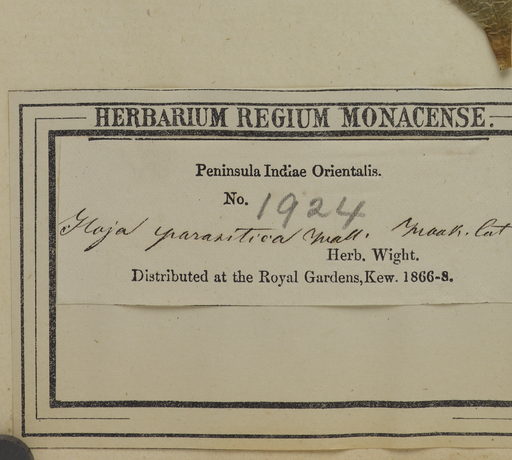 HERBARIUM REGIUM MONACENSE.
Peninsula Indiae Orientalis.
No. 1924
Hoja parasitica Wall.
Herb. Wight.
Distributed at the Royal Gardens, Kew. 1866-8.